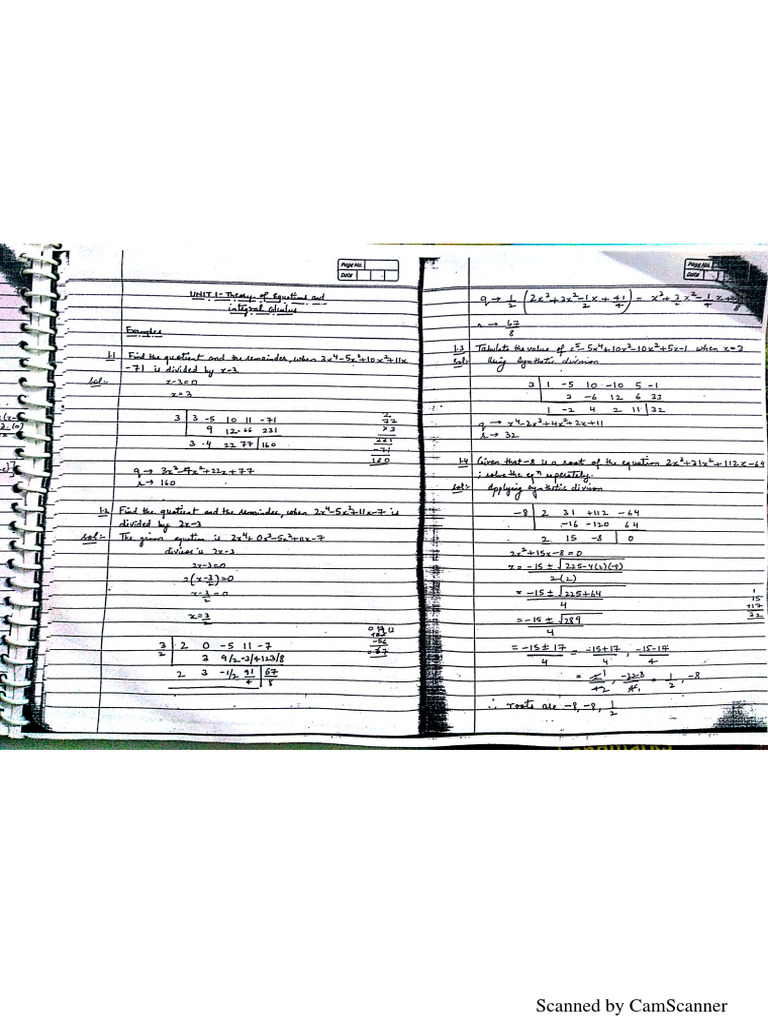 Page No.
Date
UNIT 1 - Theory of Equations and
integral calculus
Examples
1.1 Find the quotient and the remainder, when 3x⁴-5x³+10x²+11x
-71 is divided by x-3
sol:-
x-3=0
x=3
3 | 3 -5 10 11 -71
9 12 66 231
3 4 22 77 | 160
q → 3x³-4x²+22x+77
r → 160
1.2 Find the quotient and the remainder, when 2x⁴-5x²+11x-7 is
divided by 2x-3
sol:- The given equation is 2x⁴+0x³-5x²+11x-7
divisor is 2x-3
2x-3=0
2(x-3/2)=0
x-3/2=0
x=3/2
3/2 | 2 0 -5 11 -7
3 9/2 -3/4 123/8
2 3 -1/2 41/4 | 67/8
33
×3
231
-71
160
Page No.
Date
q → 1/2 (2x³+3x²-1x+41/4) = x³+3/2x²-1/4x+
r → 67/8
1.3 Tabulate the value of x⁵-5x⁴+10x³-10x²+5x-1 when x=3
sol:- Using synthetic division
3 | 1 -5 10 -10 5 -1
3 -6 12 6 33
1 -2 4 2 11 | 32
q → x⁴-2x³+4x²+2x+11
r → 32
1.4 Given that -8 is a root of the equation 2x³+31x²+112x-64
; solve the eqⁿ seperately.
sol:- Applying synthetic divison
-8 | 2 31 +112 -64
-16 -120 64
2 15 -8 | 0
2x²+15x-8=0
x = -15 ± √225-4(2)(-8)
2(2)
= -15 ± √225+64
4
= -15 ± √289
4
= -15 ± 17 / 4 = -15+17 / 4 , -15-17 / 4
= 1/2 , -8
1
15
+17
32
∴ roots are -8, -8, 1/2
Scanned by CamScanner